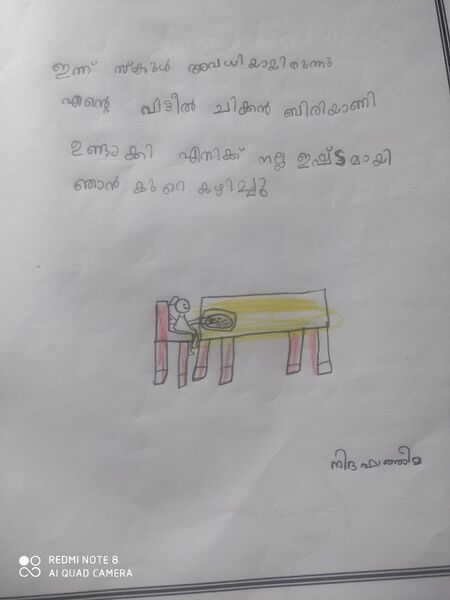 ഇന്ന് സ്കൂൾ അവധിയായിരുന്നു
എന്റെ വീട്ടിൽ ചിക്കൻ ബിരിയാണി
ഉണ്ടാക്കി എനിക്ക് നല്ല ഇഷ്ട്ടമായി
ഞാൻ കുറെ കഴിച്ചു
നിദഫാത്തിമ
REDMI NOTE 8
AI QUAD CAMERA